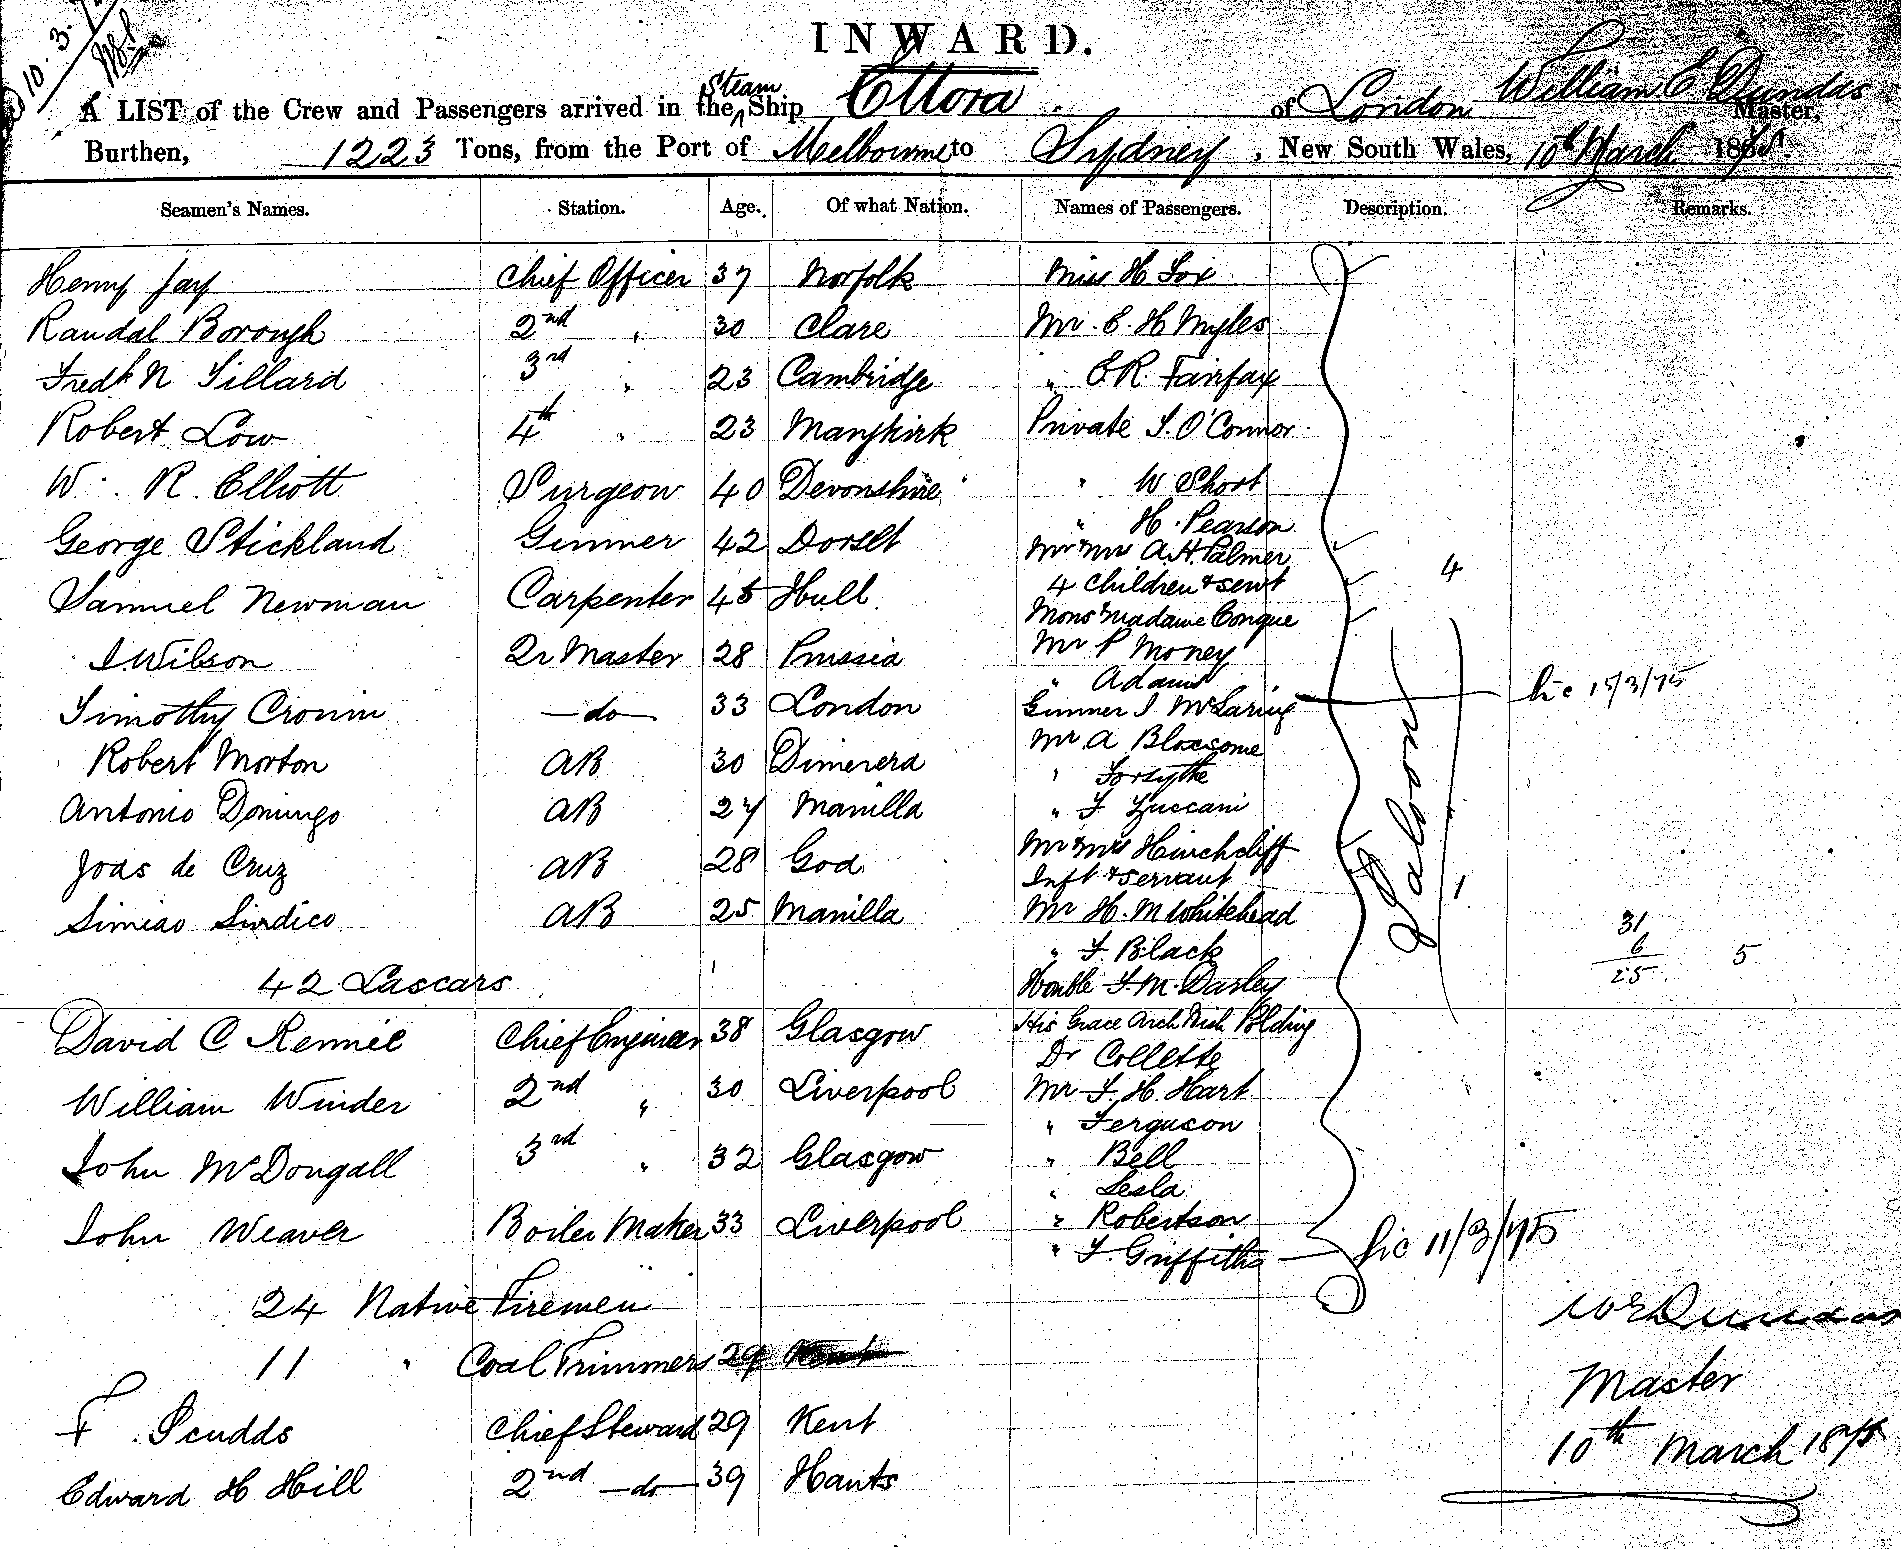 10.3.
INWARD.
A LIST of the Crew and Passengers arrived in the Steam Ship Ellora of London William E Dundas Master,
Burthen, 1223 Tons, from the Port of Melbourne to Sydney, New South Wales, 10th March 1875.
Seamen's Names. Station. Age. Of what Nation. Names of Passengers. Description. Remarks.
Henry Jay Chief Officer 37 Norfolk Miss H Fox
Randal Borough 2nd " 30 Clare Mr. E. H Myles
Fredk N Tillard 3rd " 23 Cambridge " E R Fairfax
Robert Low 4th " 23 Manskirk Private J. O'Connor
W. R. Elliott Surgeon 40 Devonshire " W Short
" H. Pearson
George Stickland Gunner 42 Dorset Mr & Mrs A. H. Palmer
4 Children & servt 4
Samuel Newman Carpenter 45 Hull Mons & Madame Conque
J Wilson Qr Master 28 Prussia Mr P Money
" Adams
Timothy Cronin —do— 33 London Gunner J McLaring 15/3/75
Mr A Bloxsome
Robert Morton AB 30 Dimerera " Forsythe
Antonio Domingo AB 27 Manilla " F Zuccani
Saloon
Joas de Cruz AB 28 Goa Mr & Mrs Hinchcliff
Inft & servant 1
Simiao Sindico AB 25 Manilla Mr H. M Whitehead 31
" F. Black 6 5
25
42 Lascars Honble F. M. Darley
David C Rennie Chief Engineer 38 Glasgow His Grace Arch Bish Polding
Dr Collette
William Winder 2nd " 30 Liverpool Mr F. H. Hart
" Ferguson
John McDougall 3rd " 32 Glasgow " Bell
" Lesla
John Weaver Boiler Maker 33 Liverpool " Robertson
" F. Griffiths 11/3/75
24 Native Firemen
W E Dundas
11 " Coal Trimmers 29 Kent
Master
F Scudds Chief Steward 29 Kent
10th March 1875
Edward H Hill 2nd —do— 39 Hants